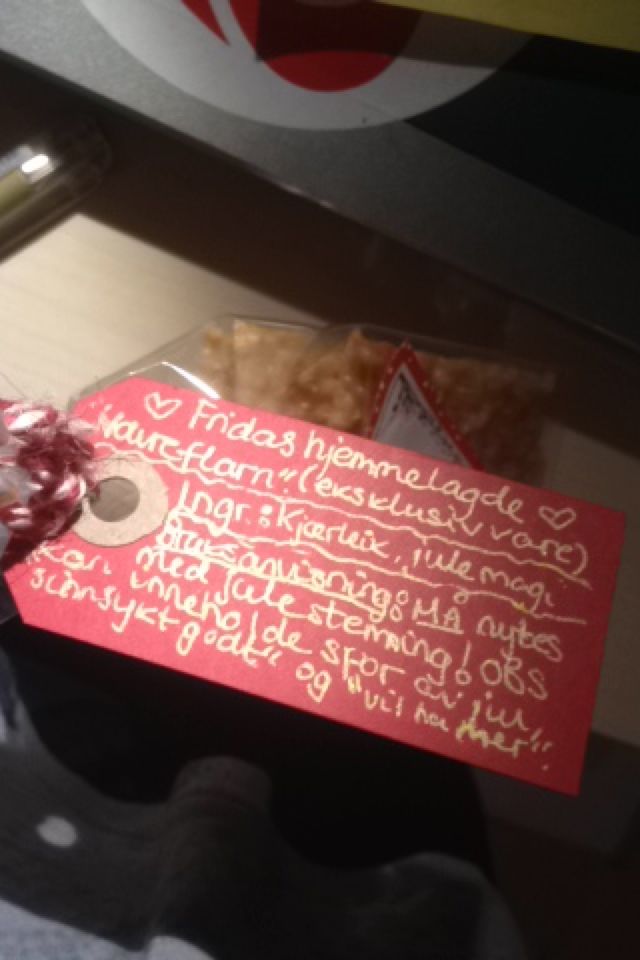 ♡ Fridas hjemmelagde ♡
Havreflarn" (eksklusiv vare)
Ingr.: Kjærleik, julemagi
Bruksanvisning: MÅ nytes
med julestemning! OBS
Kan inneholde spor av jul,
"sinnsykt godt" og "vil ha mer".